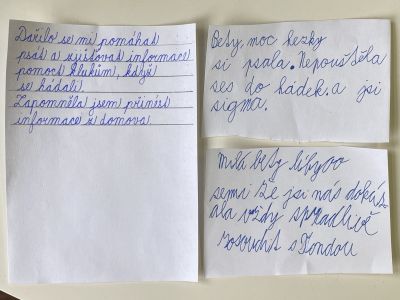 Dařilo se mi pomáhat
psát a zjišťovat informace
pomoct klukům, když
se hádali.
Zapomněla jsem přinést
informace z domova.
Bety, moc hezky
si psala. Nepouštěla
ses do hádek. a jsi
sigma.
Milá bety líbyoo
semi že jsi nás dokáz-
ala vždy spradlivě
rosoudit s Jondou